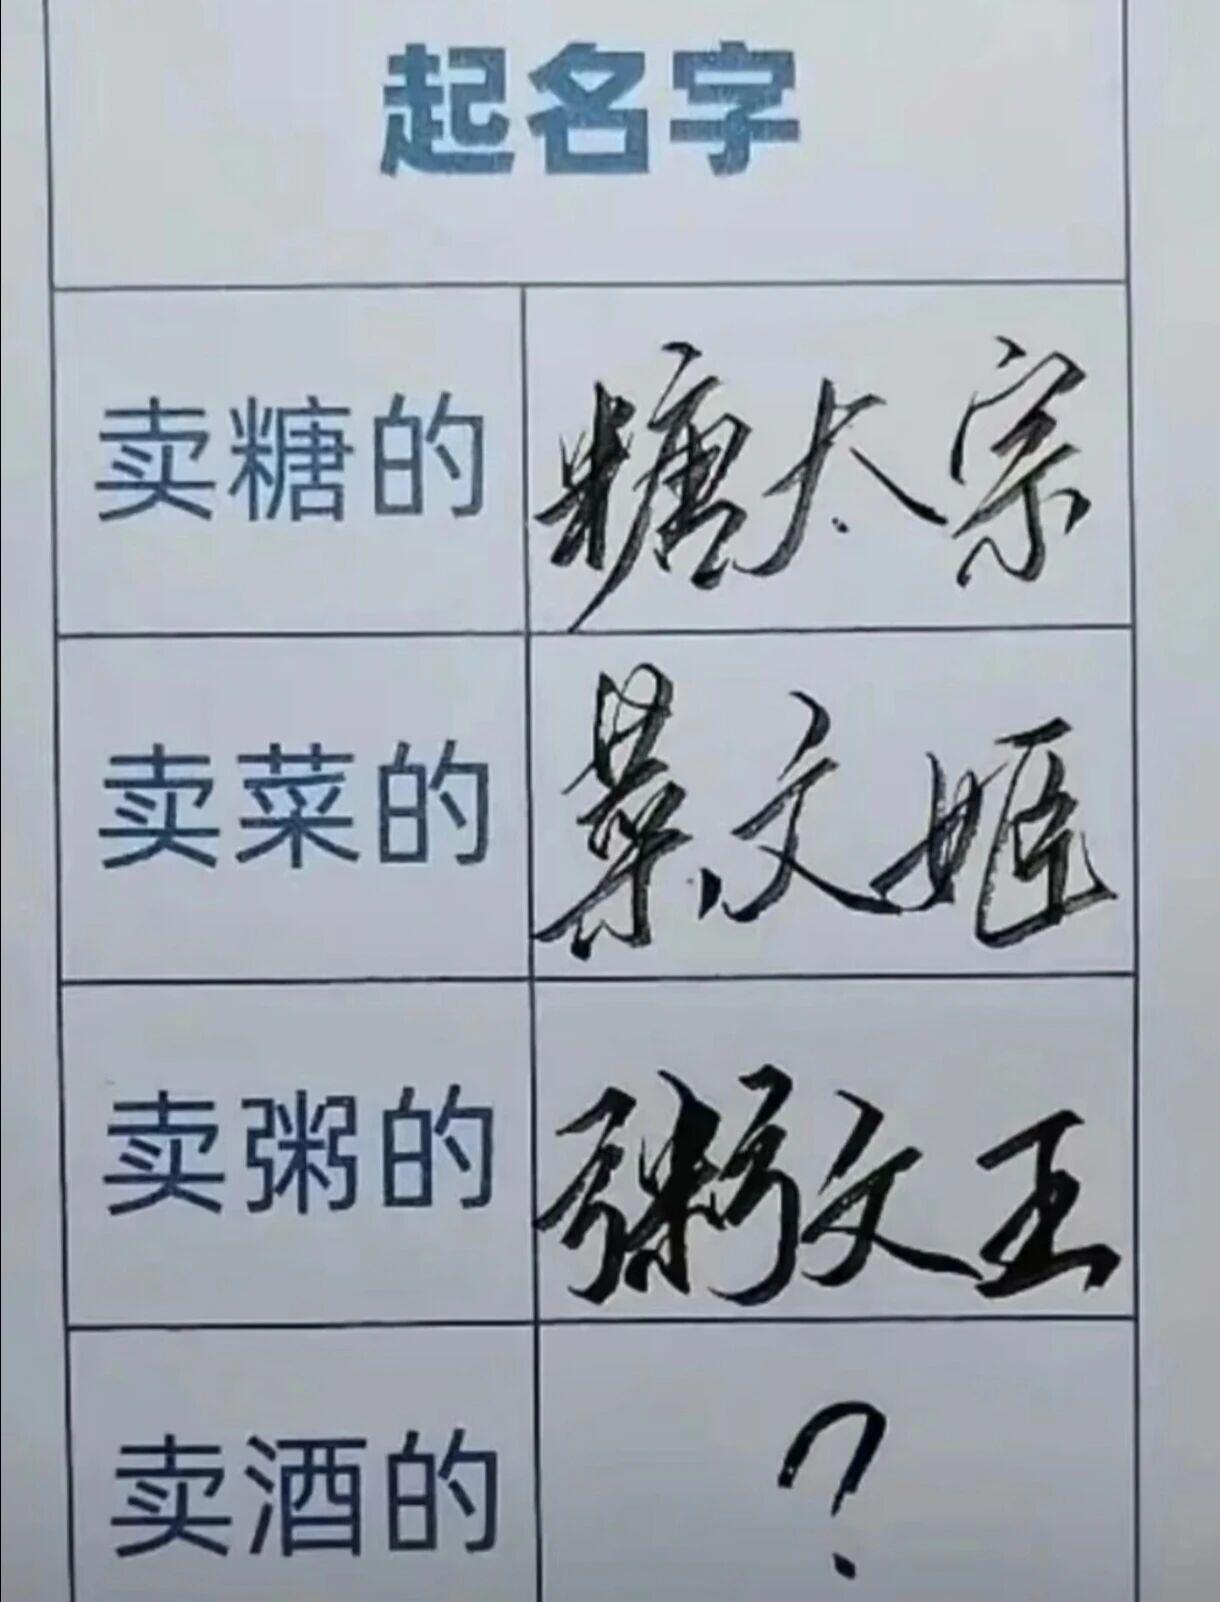 起名字
卖糖的 糖太宗
卖菜的 菜文姬
卖粥的 粥文王
卖酒的 ?